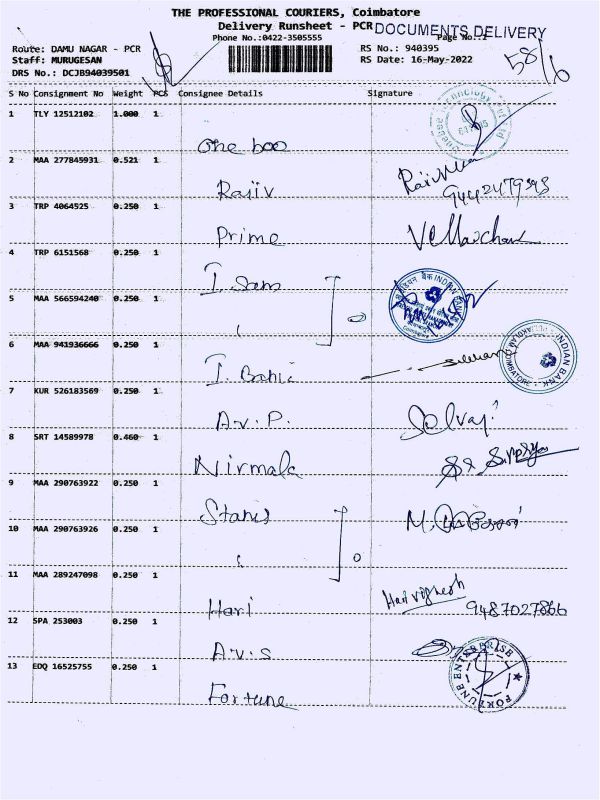 THE PROFESSIONAL COURIERS, Coimbatore
Delivery Runsheet - PCR DOCUMENTS DELIVERY
Phone No.:0422-3505555 Page No.:1
Route: DAMU NAGAR - PCR RS No.: 940395
Staff: MURUGESAN RS Date: 16-May-2022
DRS No.: DCJB94039501 58/6
S No Consignment No Weight PCS Consignee Details Signature
1 TLY 12512102 1.000 1
One boo
2 MAA 277845931 0.521 1
Rajiv
3 TRP 4064525 0.250 1
Prime
4 TRP 6151568 0.250 1
I. Sam
5 MAA 566594240 0.250 1
INDIAN BANK
6 MAA 941936666 0.250 1
INDIAN BANK
COIMBATORE
I. Bank
7 KUR 526183569 0.250 1
A.V.P. Selvaj
8 SRT 14589978 0.460 1
Nirmala
9 MAA 290763922 0.250 1
Stanis
10 MAA 290763926 0.250 1
11 MAA 289247098 0.250 1
Hari Harivignesh 9487027866
12 SPA 253003 0.250 1
A.V.S
13 EDQ 16525755 0.250 1
Fortune FORTUNE ENTERPRISE